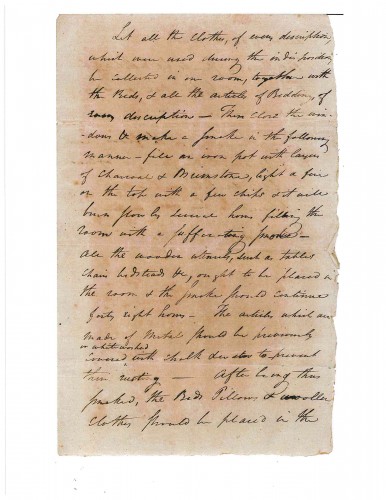 Let all the clothes, of every description
which were used during the indisposition
be collected in one room, together with
the Beds, & all the articles of Bedding, of
every description — Then Close the win-
-dows & make a smoke in the following
manner — fill an iron pot with layers
of Charcoal & Brimstone, light a fire
on the top with a few chips & it will
burn slowly several hours filling the
room with a suffocating smoke —
All the wooden utensils, such as tables
Chairs bedsteads &c, ought to be placed in
the room & the smoke should continue
forty eight hours — The articles which are
made of Metal should be previously
or white washed
Covered with chalk to prevent
their rusting — After being thus
smoked, the Beds Pillows & woollen
clothes should be placed in the